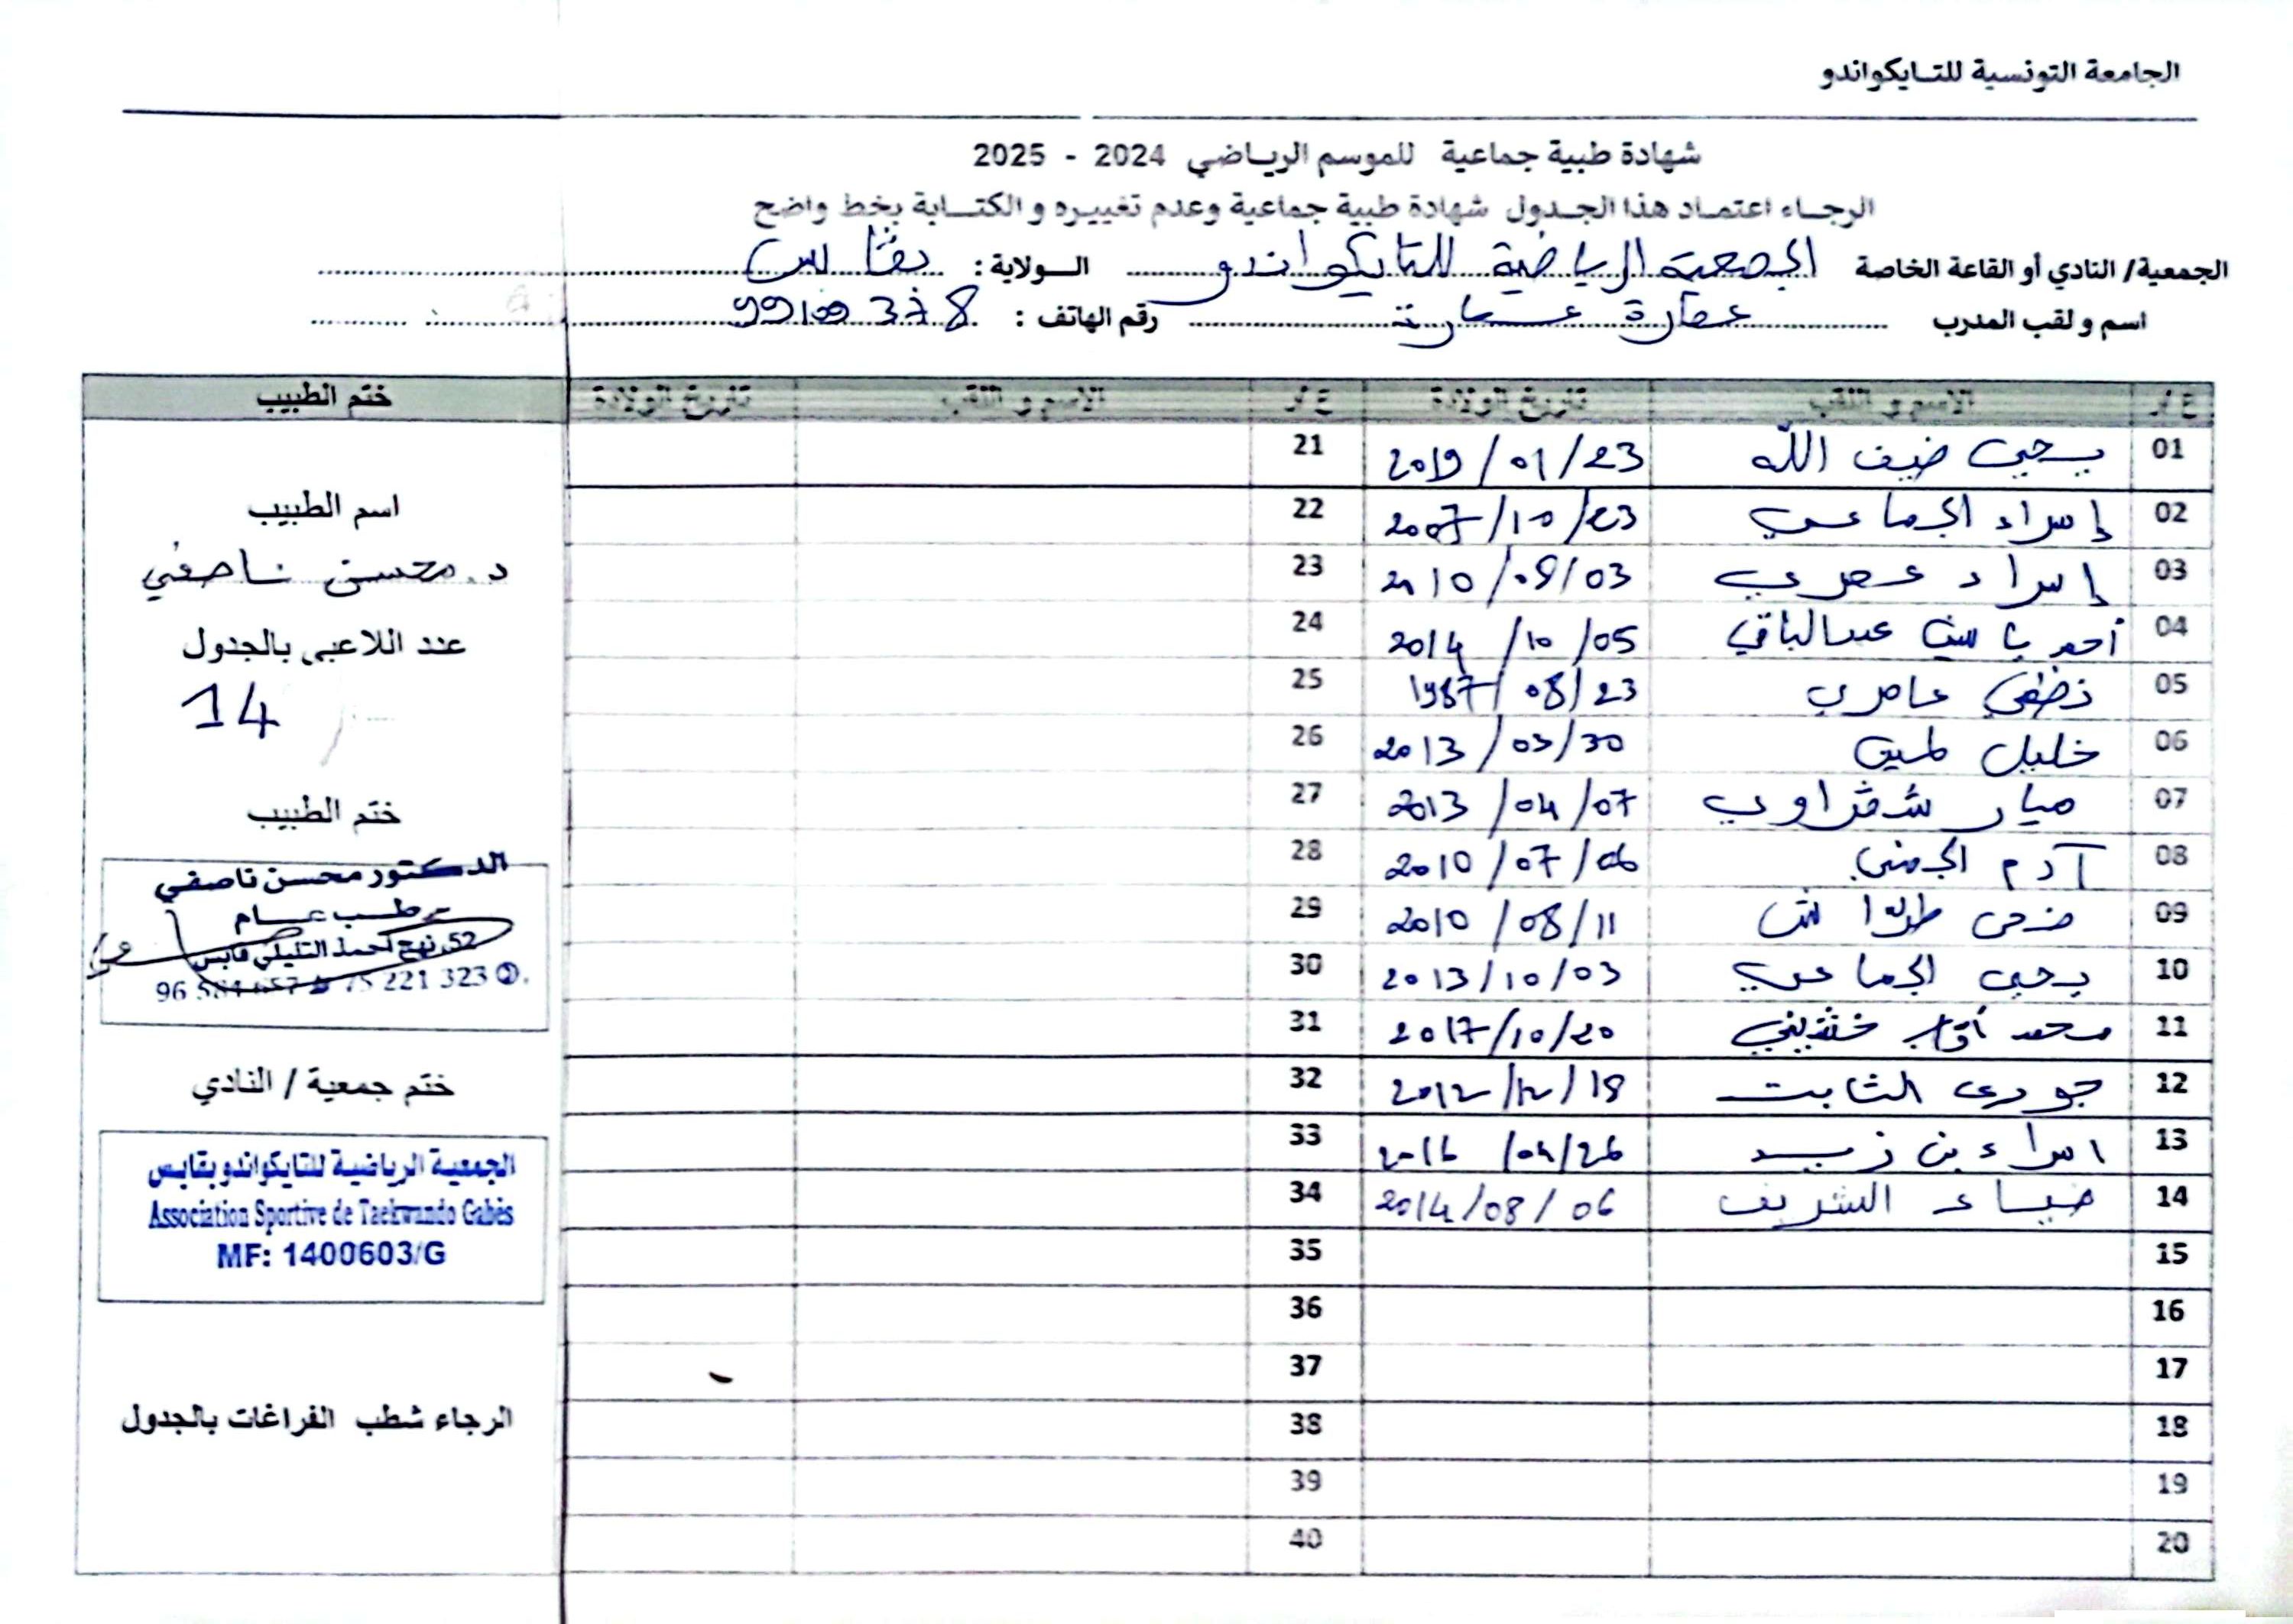 الجامعة التونسية للتايكواندو
شهادة طبية جماعية للموسم الرياضي 2024 - 2025
الرجاء اعتماد هذا الجدول شهادة طبية جماعية وعدم تغييره و الكتابة بخط واضح
الجمعية/ النادي أو القاعة الخاصة الجمعية الرياضية للتايكواندو الولاية: بقابس
اسم و لقب المدرب عمارة عمارة رقم الهاتف: 99109378
ع/ر الاسم و اللقب تاريخ الولادة ع/ر الاسم و اللقب تاريخ الولادة ختم الطبيب
01 يحي ضيف الله 2019/01/23 21
02 إسراء الجماعي 2007/10/23 22
03 إسراء عمري 03/ 2010 23
04 أحمد ياسين عبد الباقي 2014/10/05 24
05 عامري 1987/08/23 25
06 خليل 2013/03/30 26
07 ميار شقراوي 2013/04/07 27
08 آدم الجمني 2010/07/06 28
09 ضحى 2010/08/11 29
10 يحي الجماعي 2013/10/03 30
11 محمد 2017/10/20 31
12 جوري الثابت 2012/12/18 32
13 اسراء بن زيد 2016/04/26 33
14 ضياء الشريف 2014/08/06 34
15 35
16 36
17 37
18 38
19 39
20 40
اسم الطبيب
د. محسن ناصفي
عدد اللاعبي بالجدول
14
ختم الطبيب
الدكتور محسن ناصفي
طب عام
52 نهج أحمد التليلي قابس
75 221 323
ختم جمعية / النادي
الجمعية الرياضية للتايكواندو بقابس
Association Sportive de Taekwando Gabès
MF: 1400603/G
الرجاء شطب الفراغات بالجدول